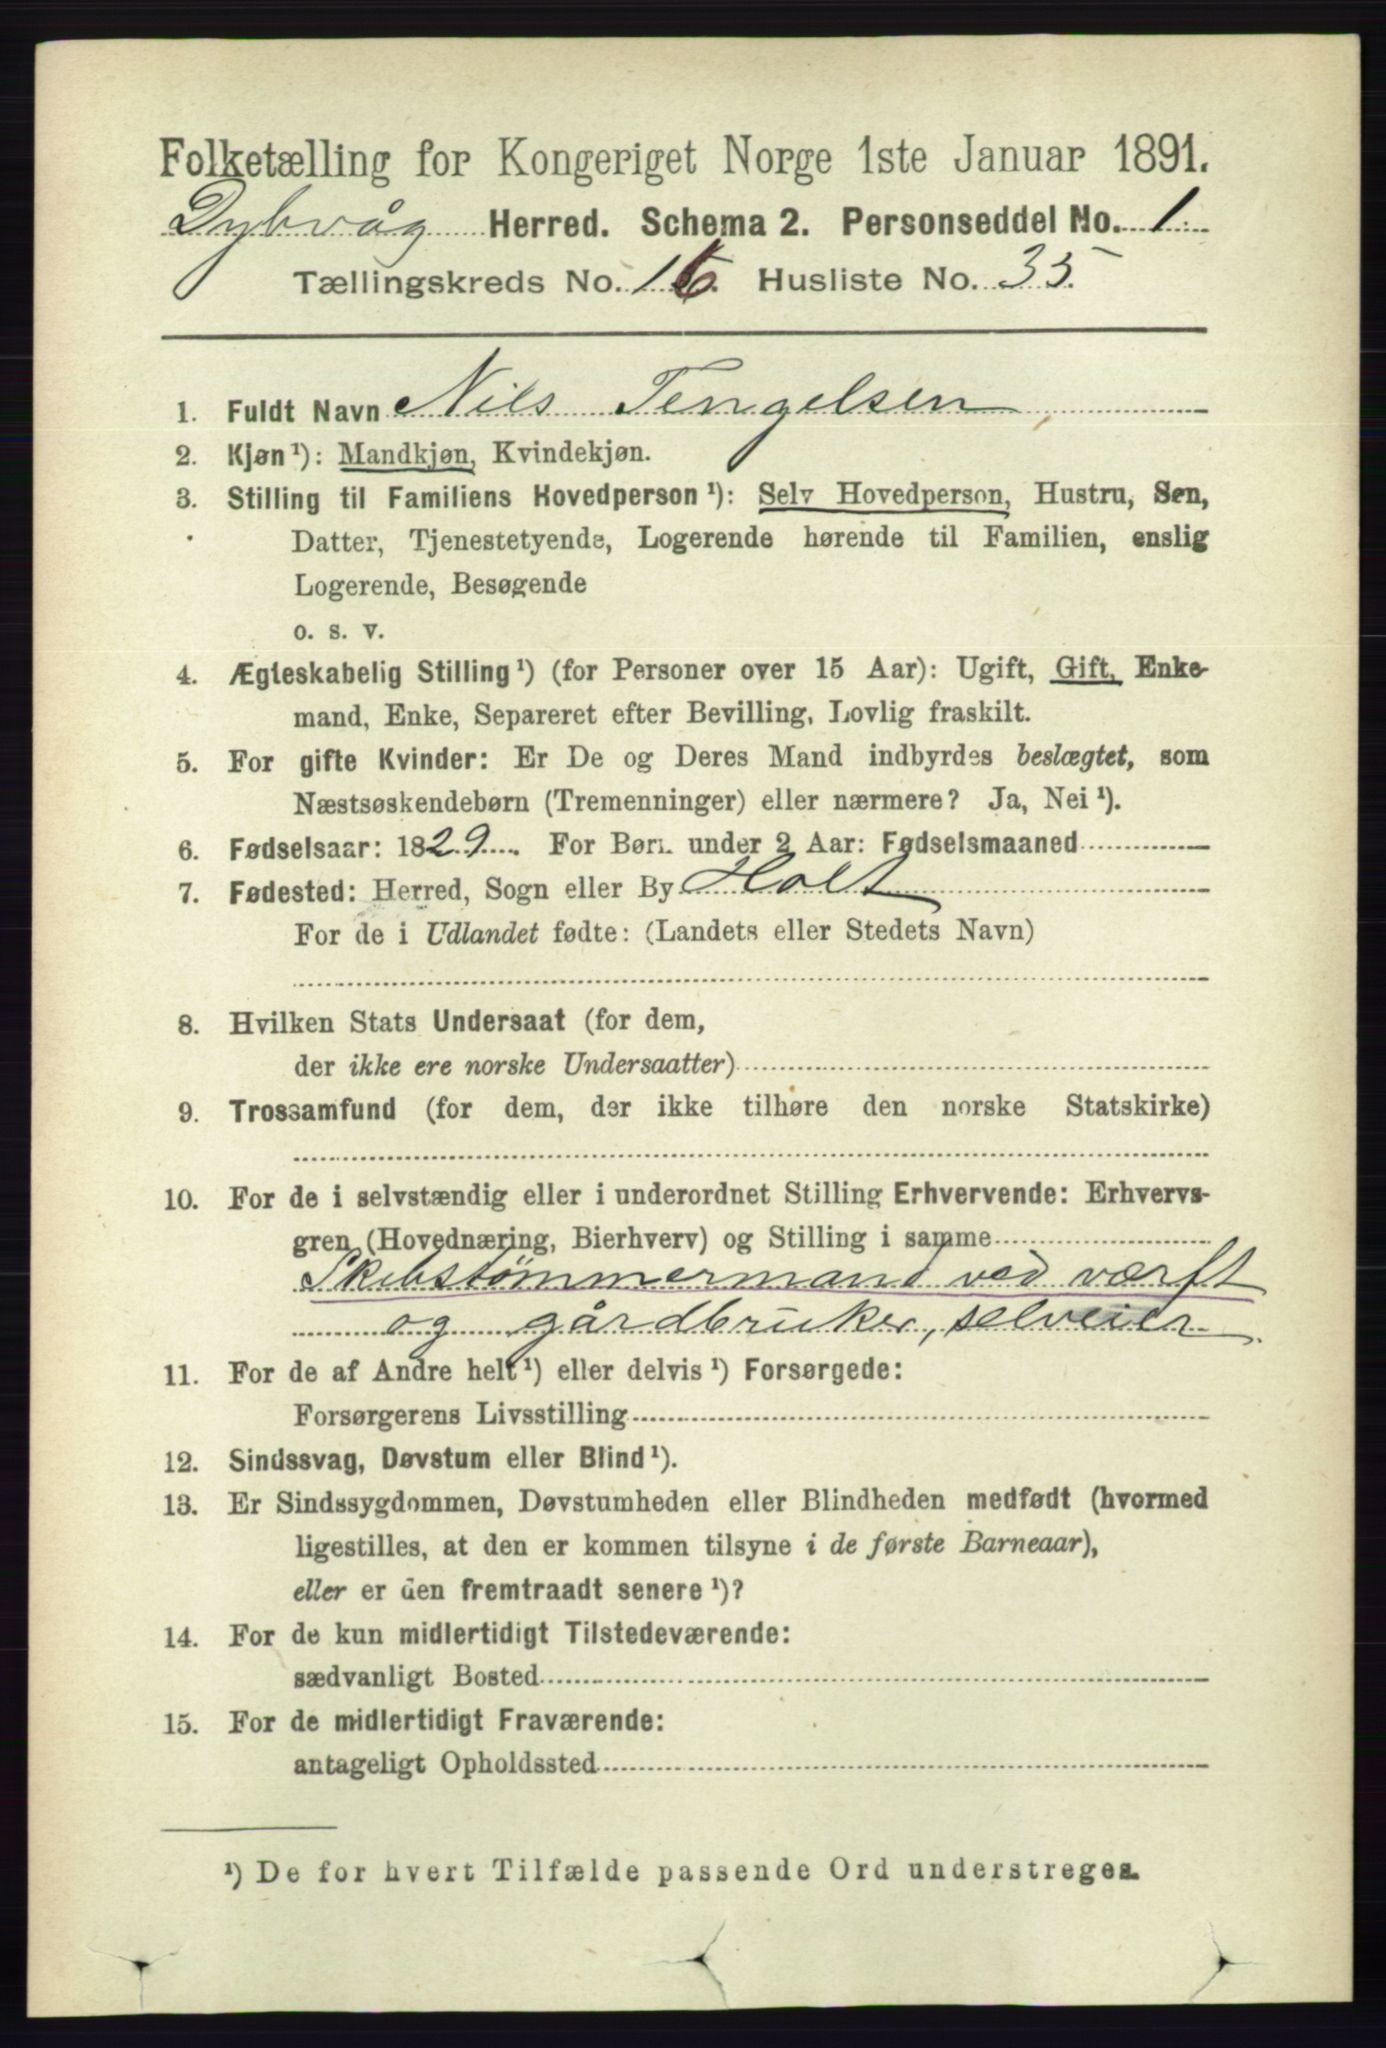 Folketælling for Kongeriget Norge 1ste Januar 1891.
Dybvåg Herred. Schema 2. Personseddel No. 1.
Tællingskreds No. 16. Husliste No. 35.
1. Fuldt Navn Nils Tengelsen
2. Kjøn¹): Mandkjøn, Kvindekjøn.
3. Stilling til Familiens Hovedperson¹): Selv Hovedperson, Hustru, Søn,
Datter, Tjenestetyende, Logerende hørende til Familien, enslig
Logerende, Besøgende
o. s. v.
4. Ægteskabelig Stilling¹) (for Personer over 15 Aar): Ugift, Gift, Enke-
mand, Enke, Separeret efter Bevilling, Lovlig fraskilt.
5. For gifte Kvinder: Er De og Deres Mand indbyrdes beslægtet, som
Næstsøskendebørn (Tremenninger) eller nærmere? Ja, Nei¹).
6. Fødselsaar: 1829. For Børn under 2 Aar: Fødselsmaaned
7. Fødested: Herred, Sogn eller By Holt
For de i Udlandet fødte: (Landets eller Stedets Navn)
8. Hvilken Stats Undersaat (for dem,
der ikke ere norske Undersaatter)
9. Trossamfund (for dem, der ikke tilhøre den norske Statskirke)
10. For de i selvstændig eller i underordnet Stilling Erhvervende: Erhvervs-
gren (Hovednæring, Bierhverv) og Stilling i samme
Skibstømmermand ved værft
og gårdbruker, selveier
11. For de af Andre helt¹) eller delvis¹) Forsørgede:
Forsørgerens Livsstilling
12. Sindssvag, Døvstum eller Blind¹).
13. Er Sindssygdommen, Døvstumheden eller Blindheden medfødt (hvormed
ligestilles, at den er kommen tilsyne i de første Barneaar),
eller er den fremtraadt senere¹)?
14. For de kun midlertidigt Tilstedeværende:
sædvanligt Bosted
15. For de midlertidigt Fraværende:
antageligt Opholdssted
¹) De for hvert Tilfælde passende Ord understreges.